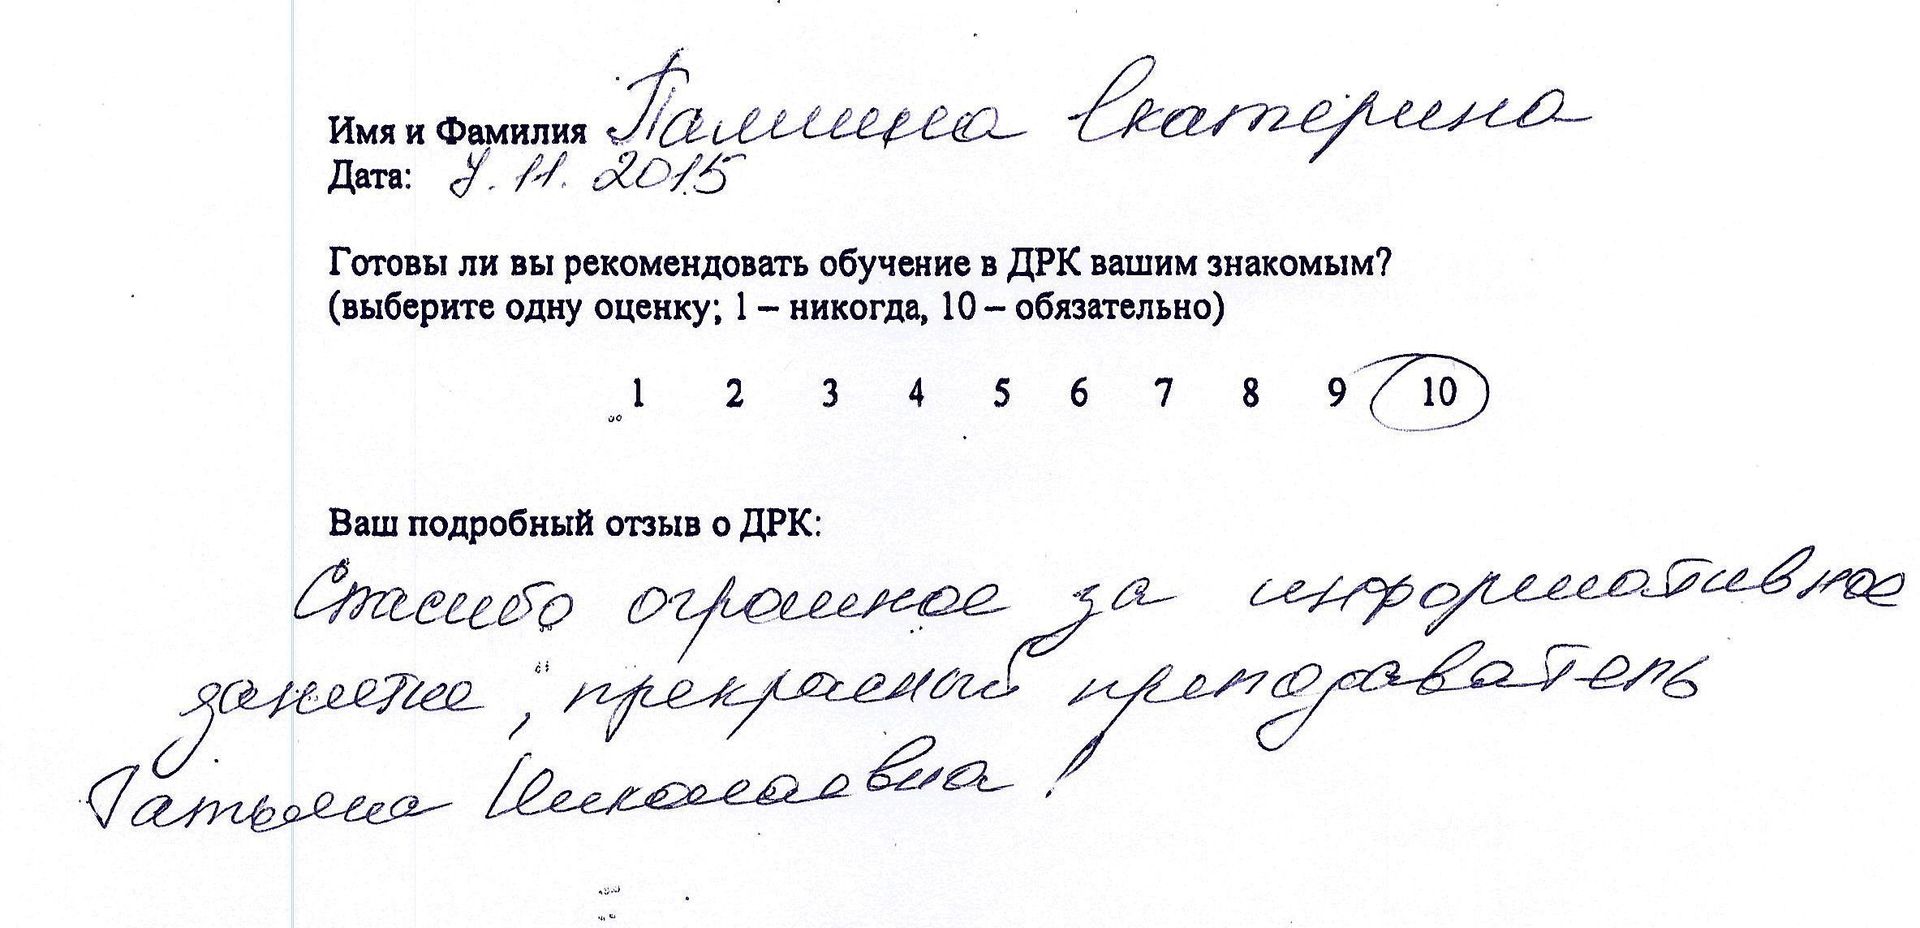 Имя и Фамилия Екатерина
Дата: 7.11.2015
Готовы ли вы рекомендовать обучение в ДРК вашим знакомым?
(выберите одну оценку; 1 – никогда, 10 – обязательно)
1 2 3 4 5 6 7 8 9 10
Ваш подробный отзыв о ДРК:
Спасибо огромное за информативное
занятие, прекрасный преподаватель
Татьяна Николаевна!